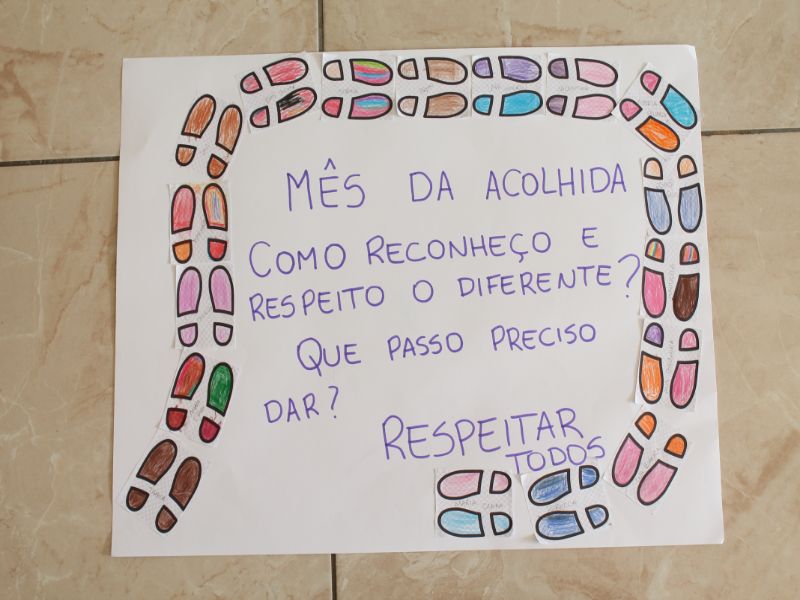 MÊS DA ACOLHIDA
COMO RECONHEÇO E
RESPEITO O DIFERENTE?
QUE PASSO PRECISO
DAR?
RESPEITAR
TODOS
MARIA CLARA